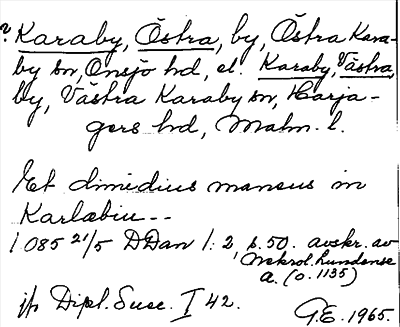 ? Karaby, Östra, by, Östra Kara-
by sn, Onsjö hd, el. Karaby, Västra,
by, Västra Karaby sn, Harja-
gers hd, Malm. l.
Et dimidius mansus in
Karlæbiu---
1085 21/5 DDan 1:2, s. 50. avskr. av
Nekrol. Lundense
a. (o. 1135)
jfr Dipl. Suec. I 42.
G.E. 1965.